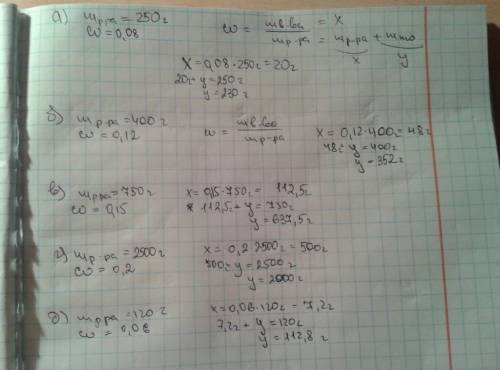 а) mр-ра = 250г
ω = 0,08
ω = mв-ва / mр-ра = x / mр-ра + mH₂O
x y
x = 0,08 · 250г = 20г
20г + y = 250г
y = 230г
б) mр-ра = 400г
ω = 0,12
ω = mв-ва / mр-ра
x = 0,12 · 400г = 48г
48г + y = 400г
y = 352г
в) mр-ра = 750г
ω = 0,15
x = 0,15 · 750г = 112,5г
112,5г + y = 750г
y = 637,5г
г) mр-ра = 2500г
ω = 0,2
x = 0,2 · 2500г = 500г
500г + y = 2500г
y = 2000г
д) mр-ра = 120г
ω = 0,06
x = 0,06 · 120г = 7,2г
7,2г + y = 120г
y = 112,8г